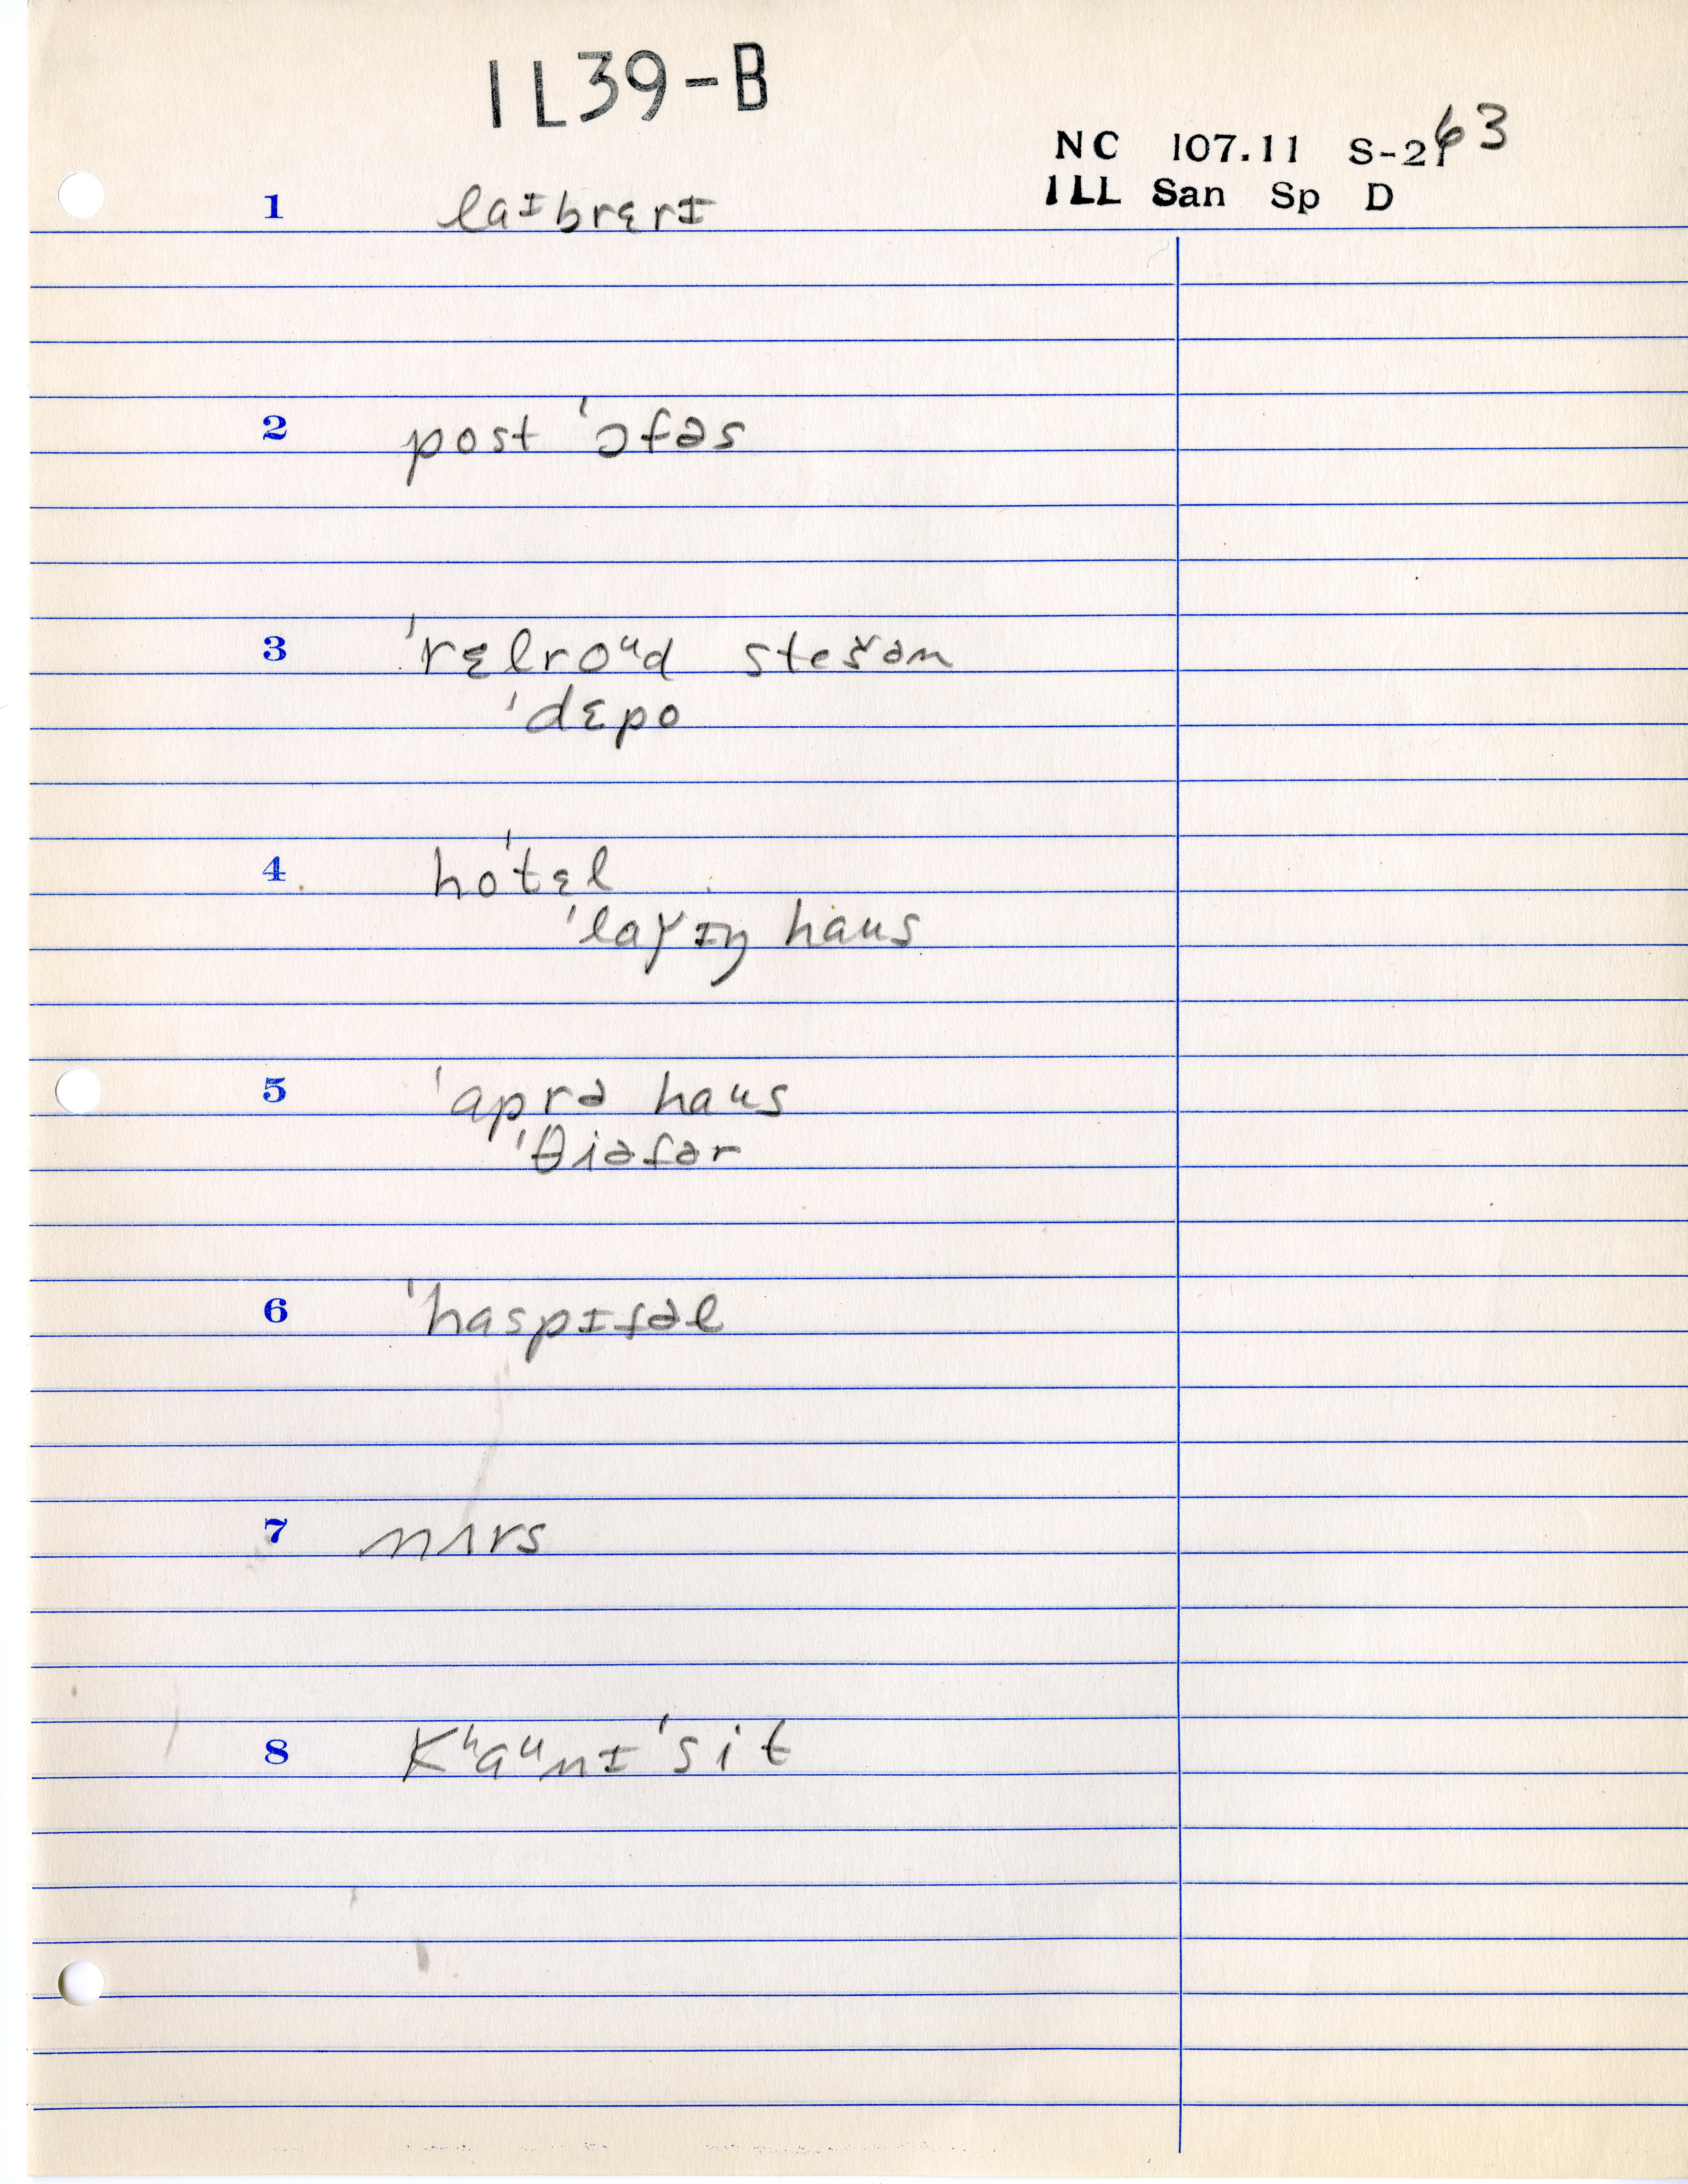 IL39-B
NC 107.11 S-263
ILL San Sp D
1 laɪbrɛrɪ
2 post 'ɔfəs
3 'rɛlroᵘd stešən
'dɛpo
4 ho'tɛl
'laɣɪŋ haus
5 'aprə haus
'θiəfər
6 'haspɪfəl
7 nʌrs
8 Kʰaᵘnɪ'sit